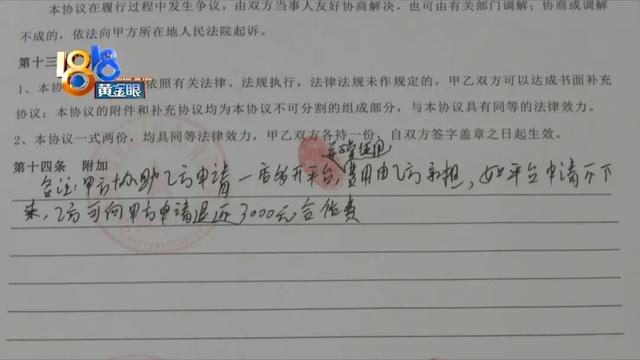 本协议在履行过程中发生争议，由双方当事人友好协商解决，也可由有关部门调解；协商或调解
不成的，依法向甲方所在地人民法院起诉。
第十三
1818
黄金眼
依照有关法律、法规执行，法律法规未作规定的，甲乙双方可以达成书面补充
协议；本协议的附件和补充协议均为本协议不可分割的组成部分，与本协议具有同等的法律效力。
2、本协议一式两份，均具同等法律效力，甲乙双方各持一份，自双方签字盖章之日起生效。
第十四条 附加
并
使用
备注：甲方协助乙方申请一店多开平台，费用由乙方承担，如平台申请不下
来，乙方可向甲方申请退还3000元合作费